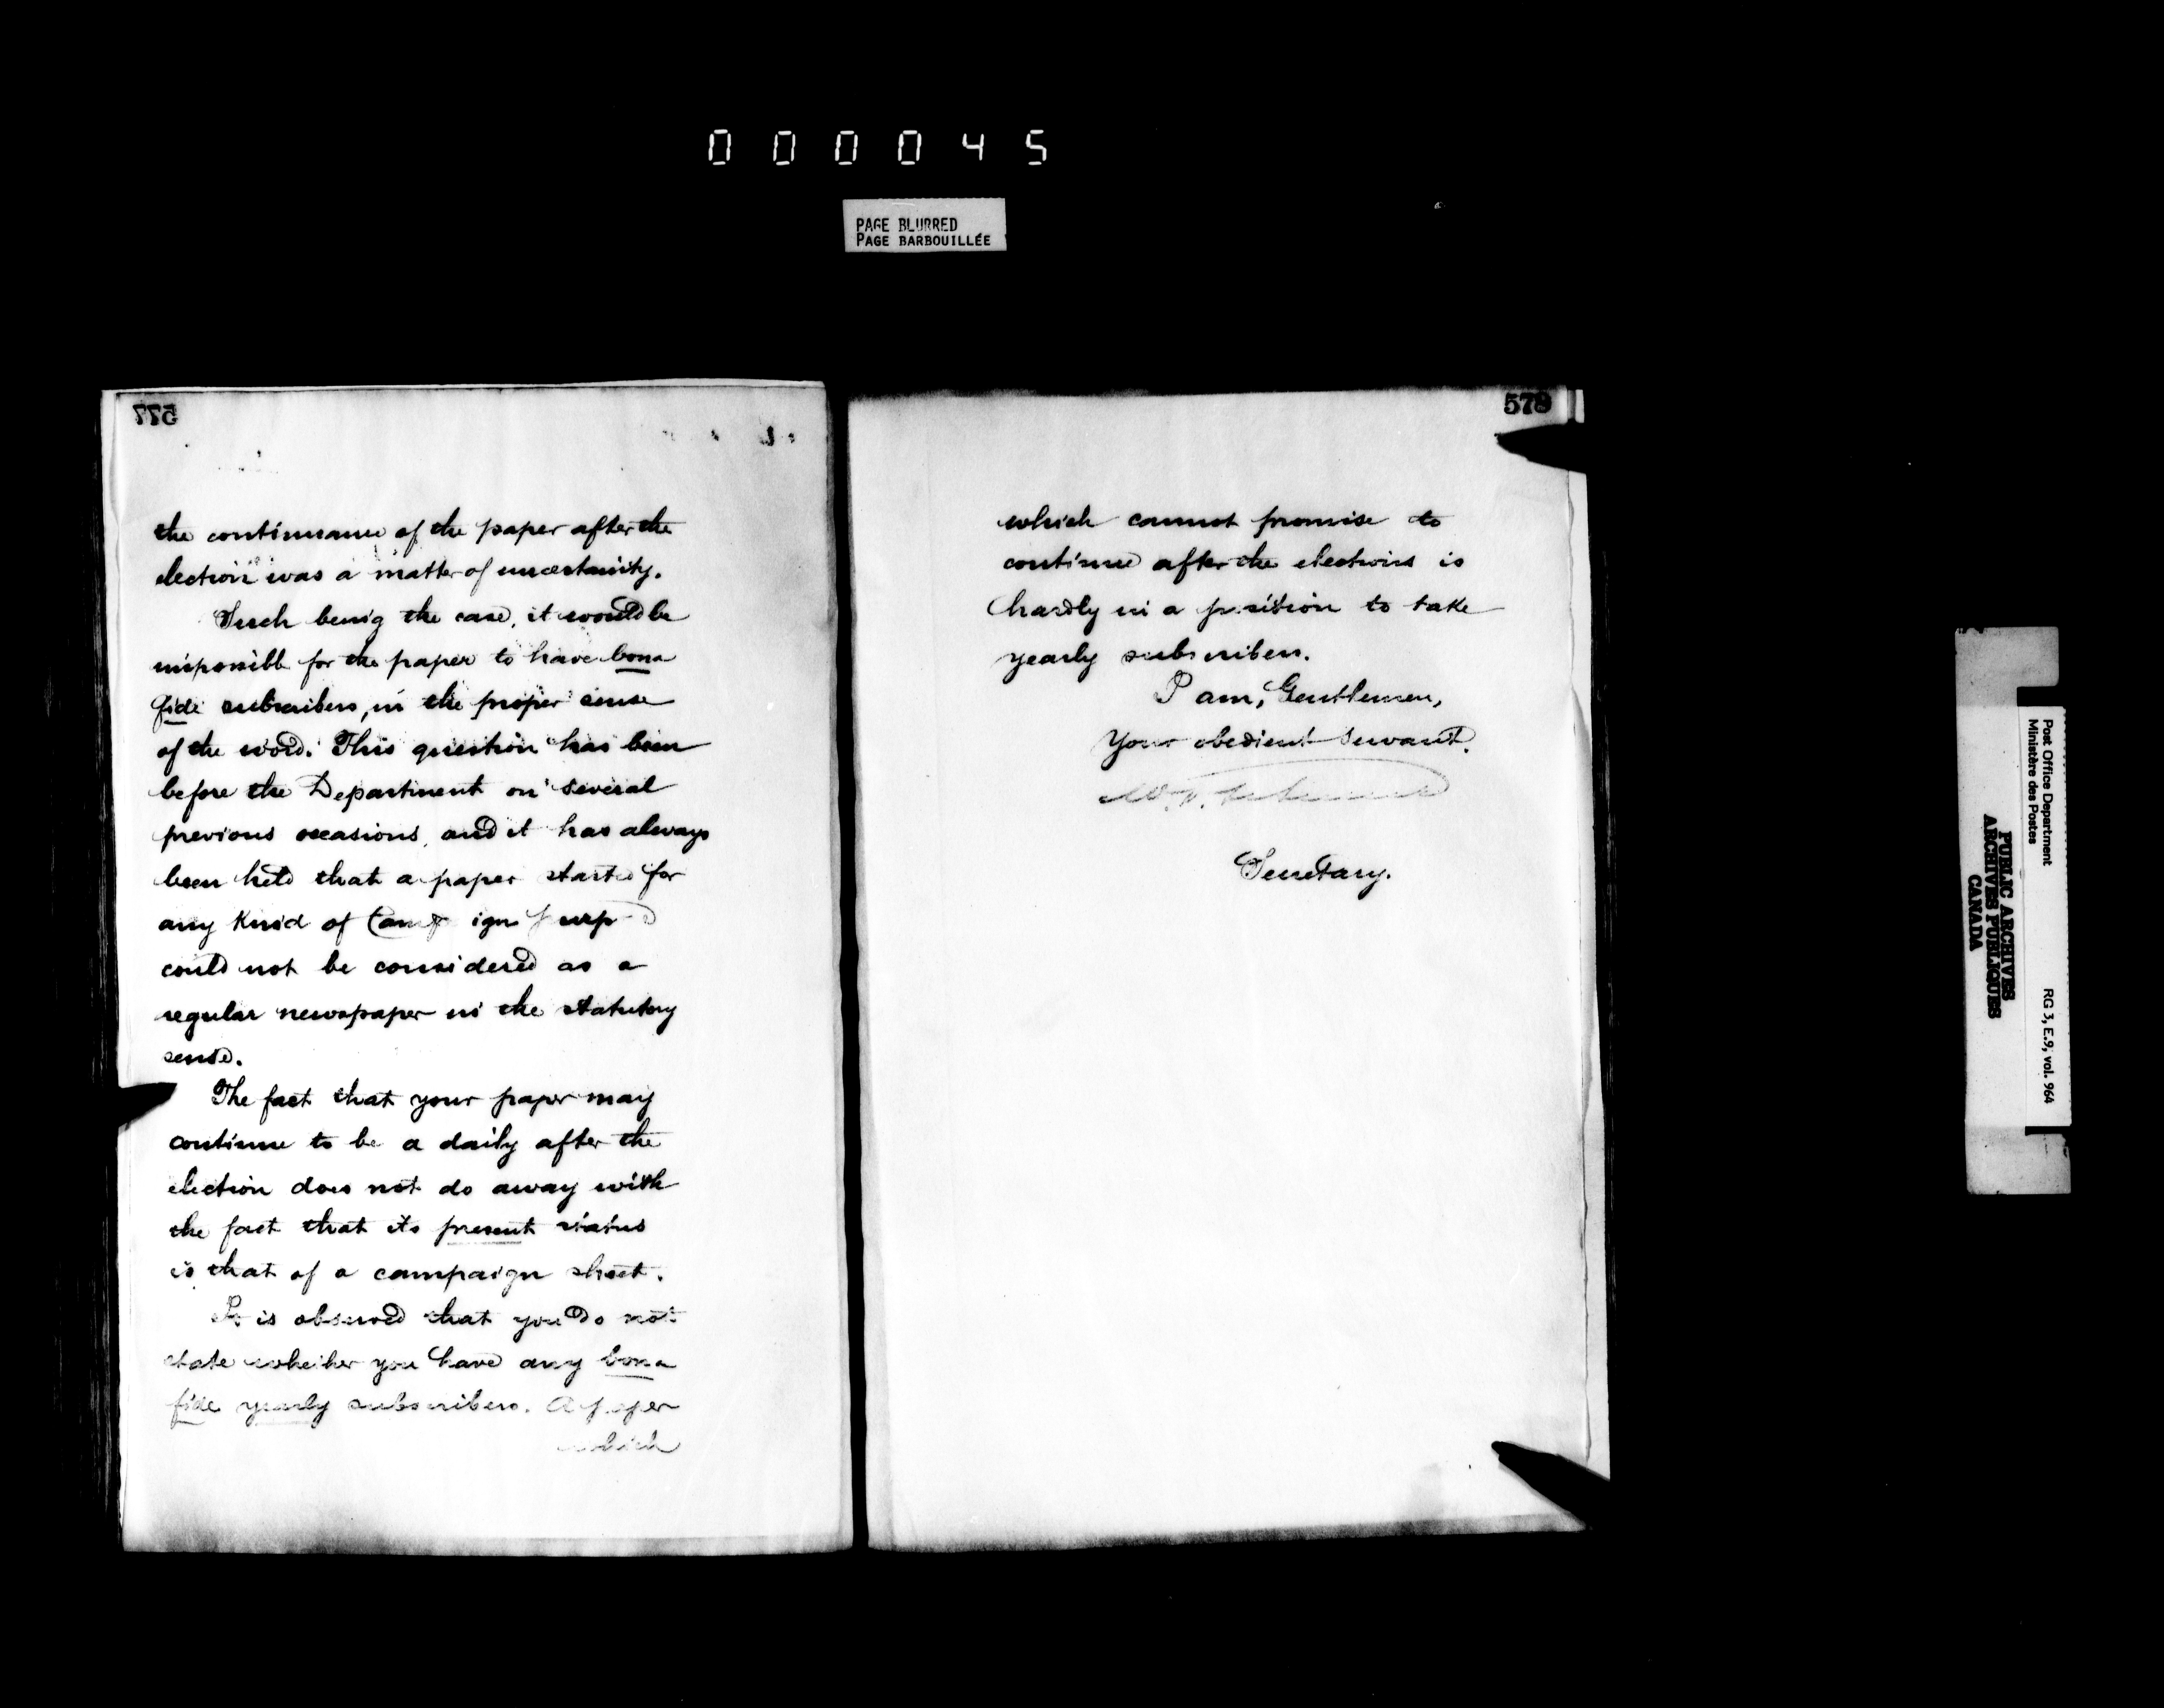 000045
PAGE BLURRED
PAGE BARBOUILLÉE
577
the continuance of the paper after the
election was a matter of uncertainty.
Such being the case, it would be
impossible for the paper to have bona
fide subscribers, in the proper sense
of the word. This question has been
before the Department on several
previous occasions, and it has always
been held that a paper started for
any kind of Campaign
could not be considered as a
regular newspaper in the statutory
sense.
The fact that your paper may
continue to be a daily after the
election does not do away with
the fact that its present status
is that of a campaign sheet.
It is observed that you do not
state whether you have any bona
fide yearly subscribers. A paper
which
578
which cannot promise to
continue after the elections is
hardly in a position to take
yearly subscribers.
I am, Gentlemen,
Your obedient Servant.
Secretary.
Post Office Department
Ministère des Postes
RG 3, E.9, vol. 964
PUBLIC ARCHIVES
ARCHIVES PUBLIQUES
CANADA